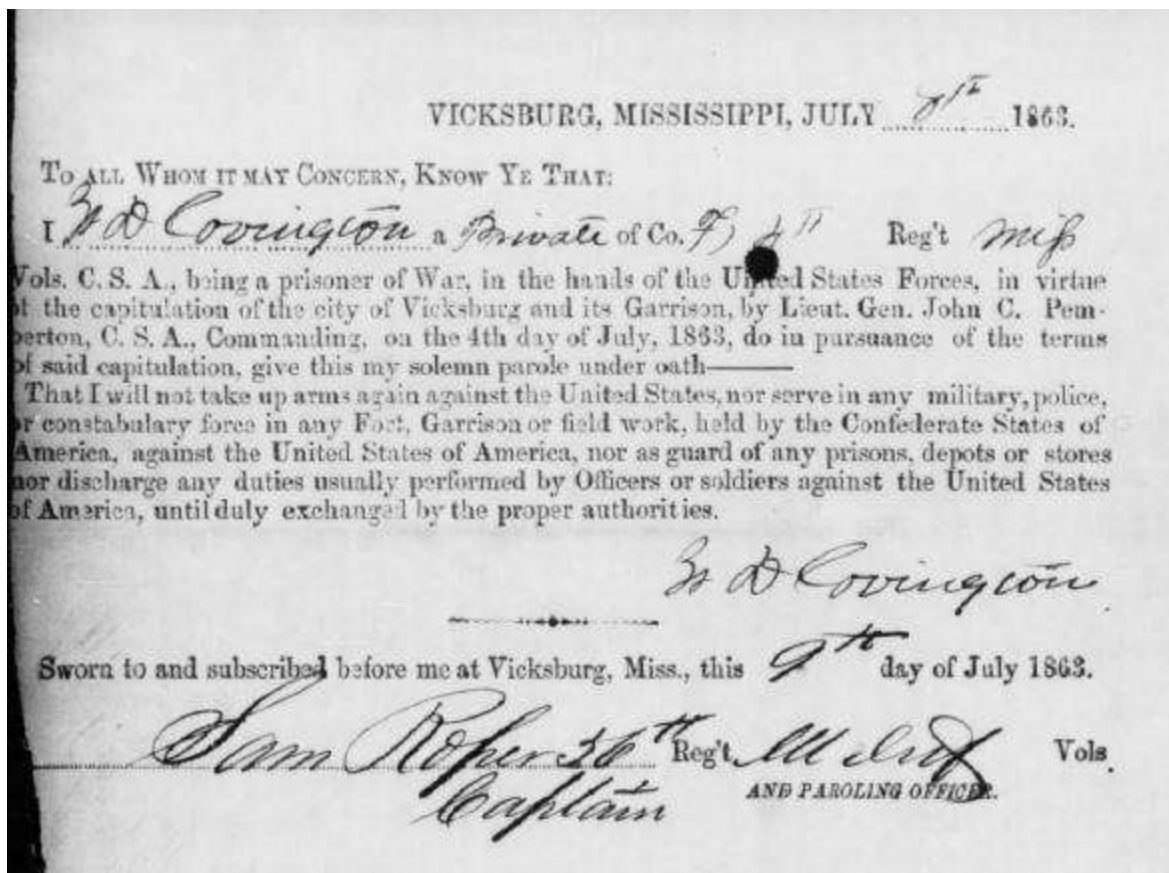 VICKSBURG, MISSISSIPPI, JULY 9th 1863.
TO ALL WHOM IT MAY CONCERN, KNOW YE THAT:
I D Covington a Private of Co. F, 4th Reg't Miss
Vols. C. S. A., being a prisoner of War, in the hands of the United States Forces, in virtue
of the capitulation of the city of Vicksburg and its Garrison, by Lieut. Gen. John C. Pem-
berton, C. S. A., Commanding, on the 4th day of July, 1863, do in pursuance of the terms
of said capitulation, give this my solemn parole under oath——
That I will not take up arms again against the United States, nor serve in any military, police,
or constabulary force in any Fort, Garrison or field work, held by the Confederate States of
America, against the United States of America, nor as guard of any prisons, depots or stores
nor discharge any duties usually performed by Officers or soldiers against the United States
of America, until duly exchanged by the proper authorities.
D Covington
Sworn to and subscribed before me at Vicksburg, Miss., this 9th day of July 1863.
Sam Roper 36th Reg't Ill Inf Vols.
Captain AND PAROLING OFFICER.